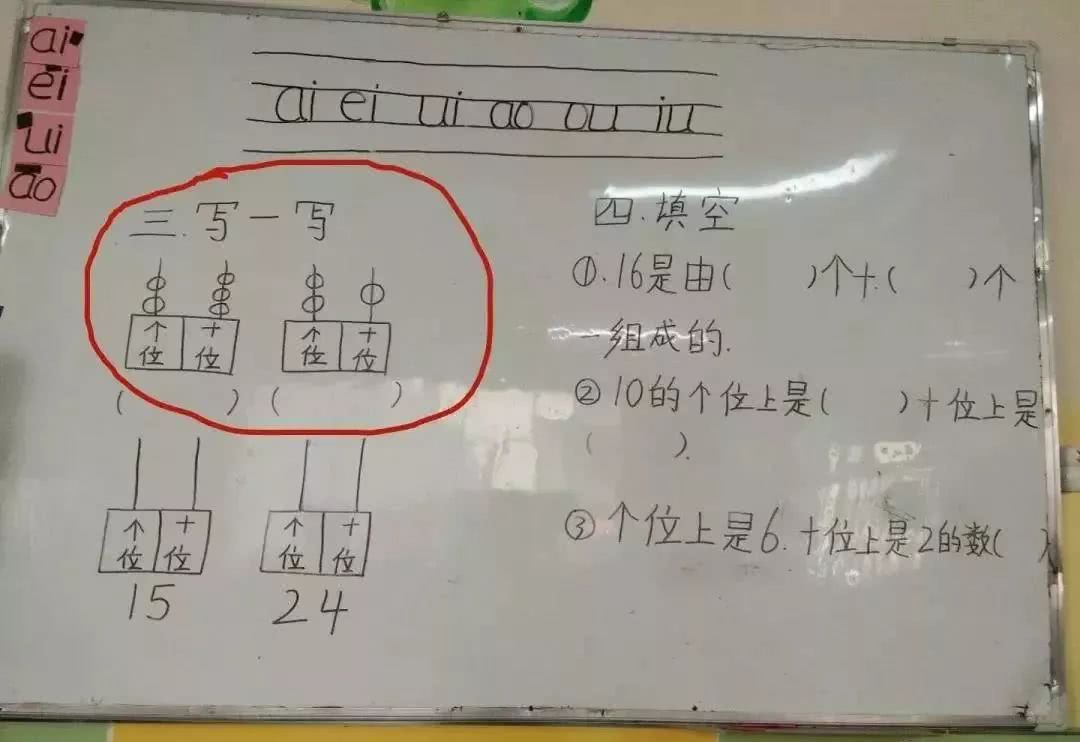 ai
ei
ui
ao
ai ei ui ao ou iu
三.写一写
个位 十位 个位 十位
( ) ( )
个位 十位 个位 十位
15 24
四.填空
①.16是由( )个十.( )个
一组成的.
②10的个位上是( )十位上是
( ).
③个位上是6.十位上是2的数( )